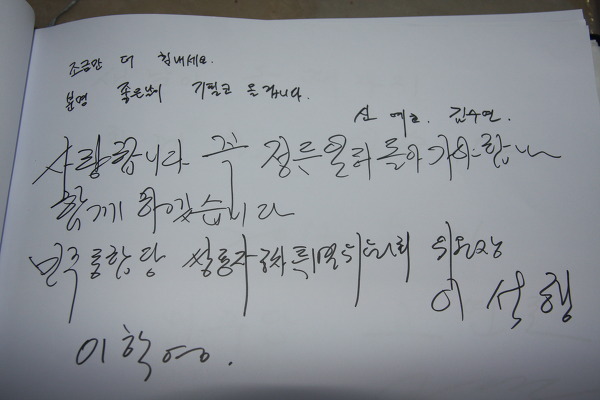 조금만 더 힘내세요.
분명 좋은날이 기필코 올겁니다.
신 예. 김수연.
사랑합니다 꼭 정든일터 돌아가야합니다
함께 하겠습니다
민주통합당 쌍용자동차특별위원회 위원장
이석행
이학영.